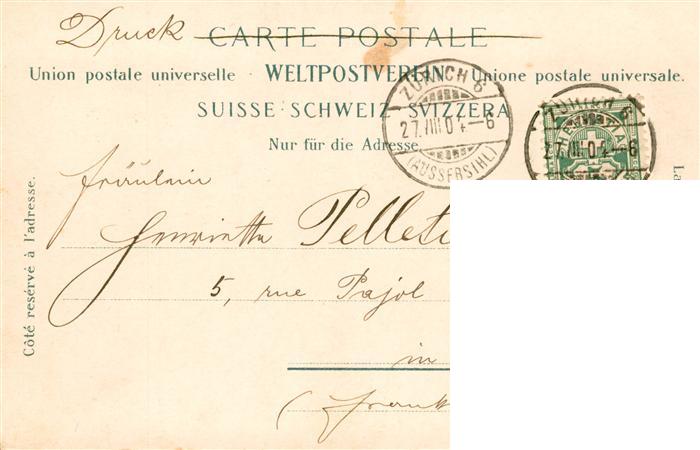 Druck CARTE POSTALE
Union postale universelle · WELTPOSTVEREIN · Unione postale universale.
SUISSE·SCHWEIZ·SVIZZERA
Nur für die Adresse
ZÜRICH 6
27.VIII.04–6
(AUSSERSIHL)
27.VIII.04–6
Fräulein
Henriette
5, rue Pajol
in
Côté resérvé à l'adresse.